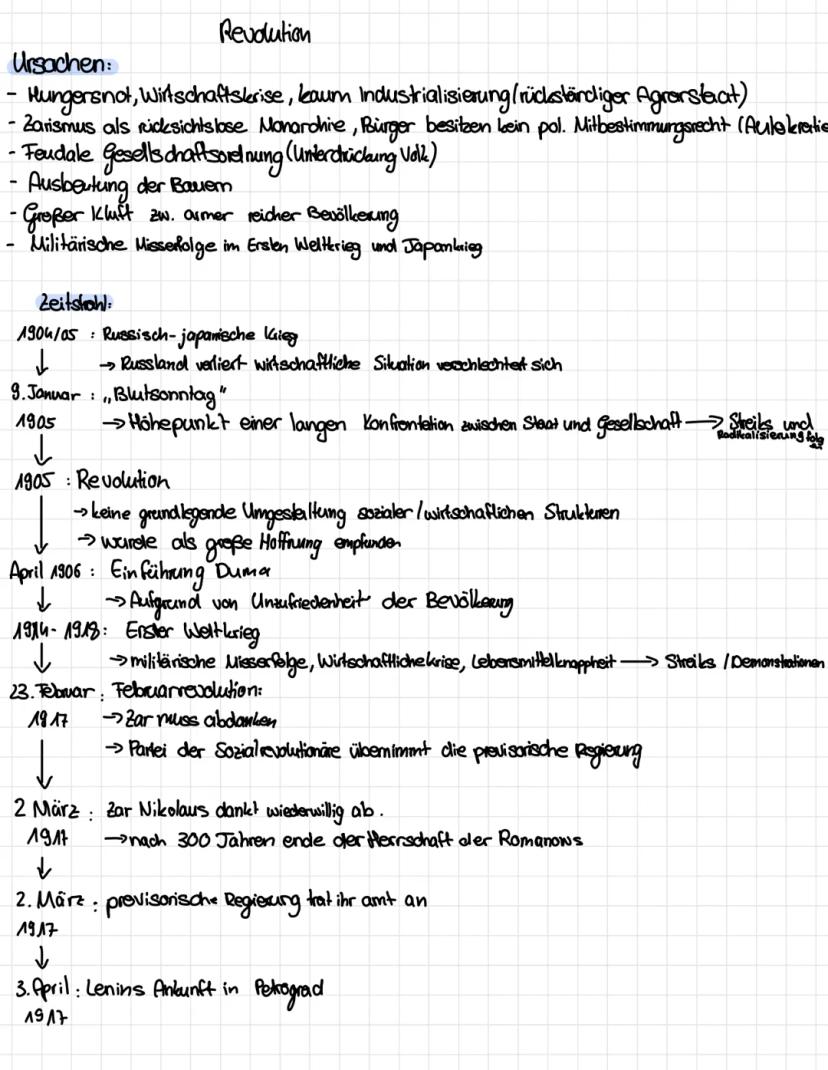 Revolution
Ursachen:
- Hungersnot, Wirtschaftskrise, kaum Industrialisierung (rückständiger Agrarstaat)
- Zarismus als rücksichtslose Monarchie, Bürger besitzen kein pol. Mitbestimmungsrecht (Autokratie
- Feudale Gesellschaftsordnung (Unterdrückung Volk)
- Ausbeutung der Bauern
- Großer Kluft zw. armer reicher Bevölkerung
- Militärische Misserfolge im Ersten Weltkrieg und Japankrieg
Zeitstrahl:
1904/05 : Russisch-japanische Krieg
↓ → Russland verliert wirtschaftliche Situation verschlechtert sich
9. Januar : „Blutsonntag"
1905 → Höhepunkt einer langen Konfrontation zwischen Staat und Gesellschaft → Streiks und
Radikalisierung folgt
↓
1905 : Revolution
→ keine grundlegende Umgestaltung sozialer/wirtschaflichen Strukturen
↓ → wurde als große Hoffnung empfunden
April 1906 : Einführung Duma
↓ → Aufgrund von Unzufriedenheit der Bevölkerung
1914-1918: Erster Weltkrieg
↓ → militärische Misserfolge, Wirtschaftlichekrise, Lebensmittelknappheit → Streiks / Demonstrationen
23. Februar : Februarrevolution:
1917 → Zar muss abdanken
↓ → Partei der Sozialrevolutionäre übernimmt die previsorische Regierung
2 März : Zar Nikolaus dankt wiederwillig ab.
1917 → nach 300 Jahren ende der Herrschaft der Romanows
↓
2. März : previsorische Regierung trat ihr amt an
1917
↓
3. April : Lenins Ankunft in Petrograd
1917